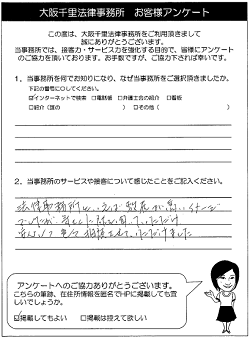 大阪千里法律事務所　お客様アンケート
この度は、大阪千里法律事務所をご利用頂きまして
誠にありがとうございます。
当事務所では、接客力・サービス力を強化する目的で、皆様にアンケート
のご協力を頂いております。お手数ですが、ご協力下されば幸いです。
1．当事務所を何でお知りになり、なぜ当事務所をご選択頂きましたか。
下記の番号に○してください。
☑インターネットで検索　□電話帳　□弁護士会の紹介　□看板
□紹介（誰の　　　　　）　□その他（　　　　　）
2．当事務所のサービスや接客について感じたことをご記入ください。
法律事務所といえば敷居が高いイメージ
でしたが、
相談
アンケートへのご協力ありがとうございます。
こちらの筆跡、在住所情報を匿名でHPに掲載しても宜
しいでしょうか。
☑掲載してもよい　□掲載は控えて欲しい